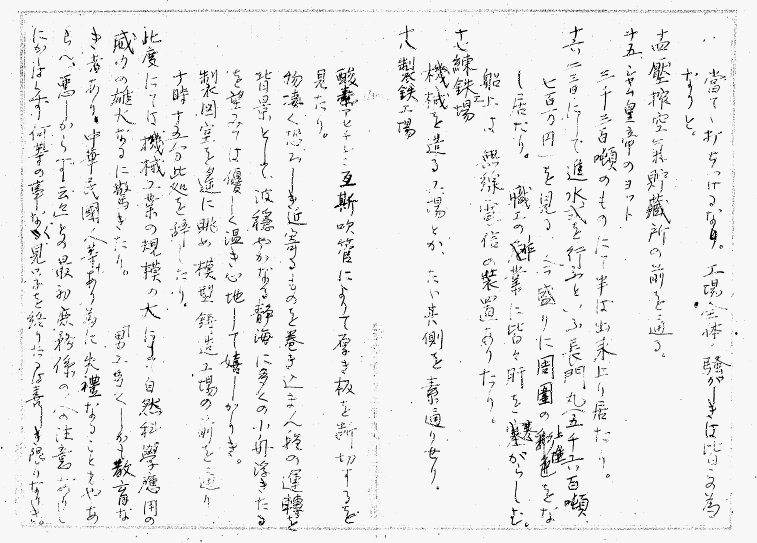 當て、打ちつけるなり。工場全体騒がしきは皆この為
なりと。
十四、壓搾空氣貯藏所の前を通る。
十五、皇帝のヨット
三千三百噸のものにて半ば出来上り居たり。
十六、二三日にして進水式を行ふといふ長門丸(五千六百噸
七百万円)を見る 今盛りに周圍の彩色をな
し居たり。職工の作業に皆々肝を寒がらしむ。
船には無線電信の装置ありたり。
十七、練鉄工場
機械を造る工場とか、たゞ其側を素通りせり。
十八、製鉄工場
酸素アセチレン瓦斯吹管によりて厚き板を断切するを
見たり。
物凄く恐ろしき近寄るものを巻き込まん様の運轉を
背景として、波穏やかなる静海に多くの小舟浮きたる
を望みては優しく温き心地して嬉しかりき。
製図室を遙に眺め模型鋳造工場の前を通り
十時十五分此処を辞したり。
此度にては機械工業の規模の大にまた自然科學應用の
威力の雄大なるに驚きたり。男工多くしかも教育な
き者あり。中華民国人等あり為に失禮なることもやあ
らん、悪しからず云々との最初庶務係の御注意ありし
にかはらず何等の事なく見学を終りたるは喜しき限りなりき。